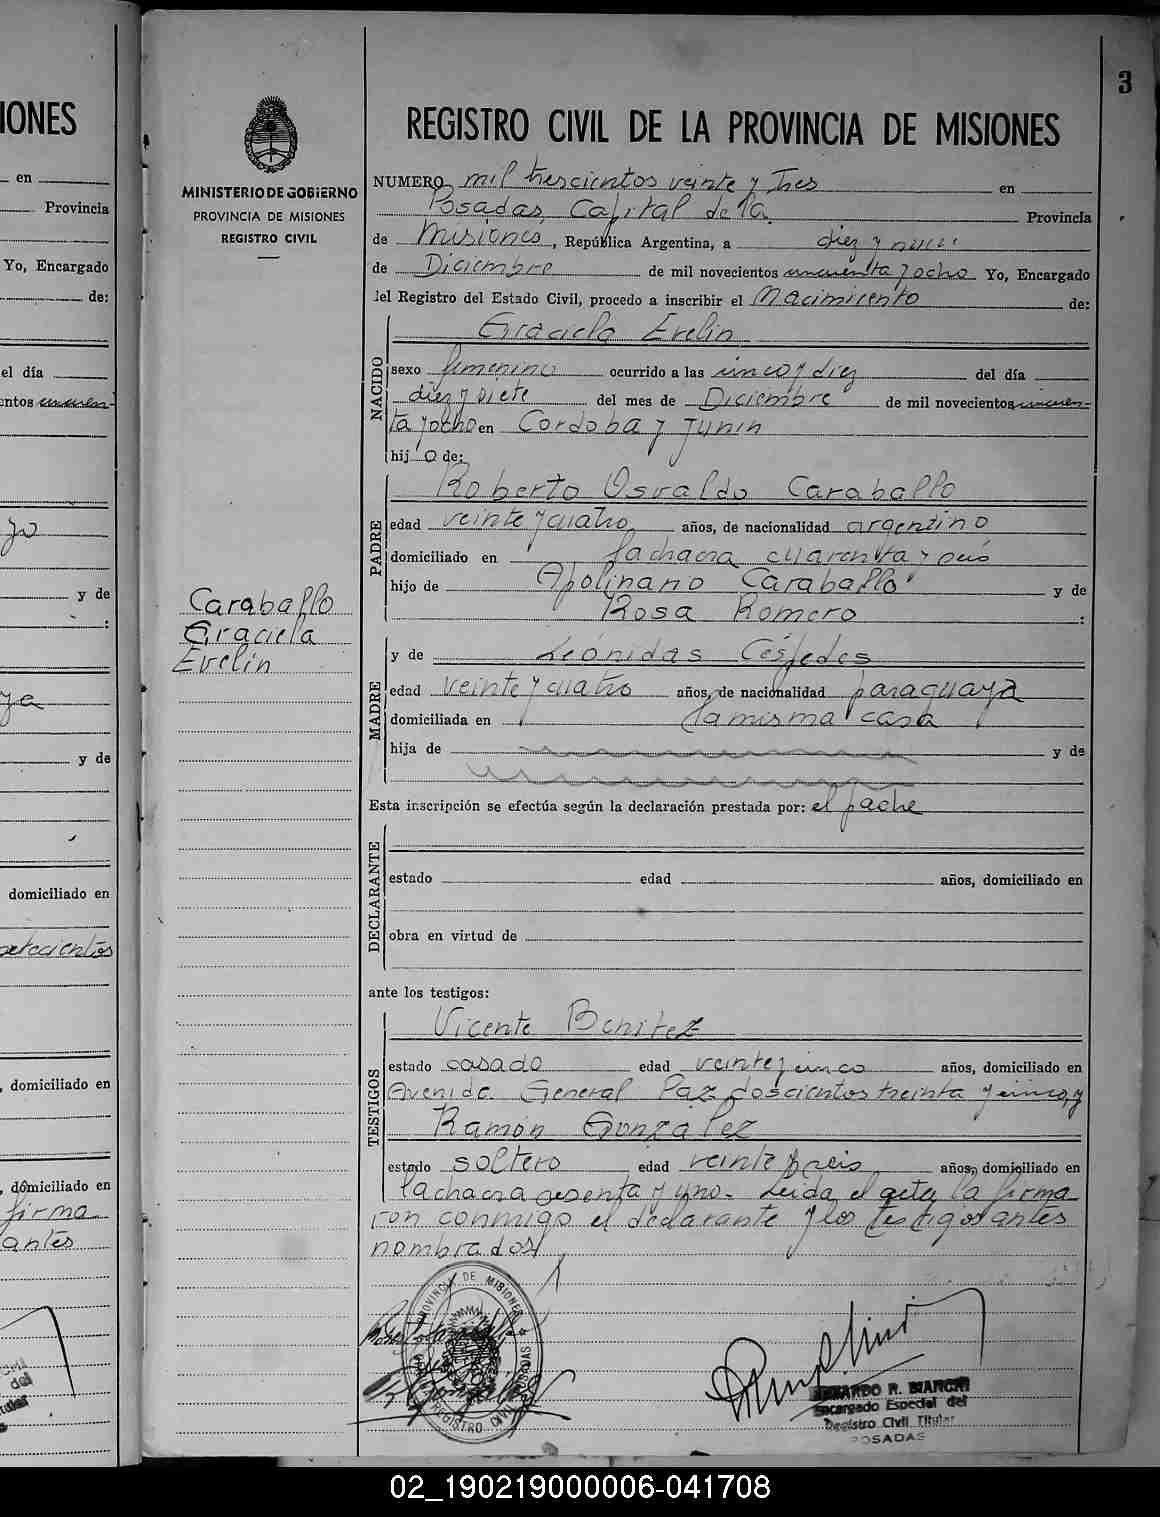 IONES
en
Provincia
Yo, Encargado
de:
el día
entos cincuen-
yo
y de
:
ya
y de
domiciliado en
setecientos
, domiciliado en
, domiciliado en
firma
antes
3
MINISTERIO DE GOBIERNO
PROVINCIA DE MISIONES
REGISTRO CIVIL
Caraballo
Graciela
Evelin
REGISTRO CIVIL DE LA PROVINCIA DE MISIONES
NUMERO mil trescientos veinte y Tres en
Posadas, Capital de la Provincia
de Misiones, República Argentina, a diez y nueve
de Diciembre de mil novecientos cincuenta y ocho Yo, Encargado
del Registro del Estado Civil, procedo a inscribir el Nacimiento de:
NACIDO
Graciela Evelin
sexo femenino ocurrido a las cinco y diez del día
diez y siete del mes de Diciembre de mil novecientos cincuen-
ta y ocho en Cordoba y Junin
hij a de:
PADRE
Roberto Osvaldo Caraballo
edad veinte y cuatro años, de nacionalidad argentino
domiciliado en la chacra cuarenta y seis
hijo de Apolinario Caraballo y de
Rosa Romero :
MADRE
y de Leónidas Céspedes
edad veinte y cuatro años, de nacionalidad paraguaya
domiciliada en la misma casa
hija de y de
Esta inscripción se efectúa según la declaración prestada por: el padre
DECLARANTE
estado edad años, domiciliado en
obra en virtud de
ante los testigos:
TESTIGOS
Vicente Benitez
estado casado edad veinte y cinco años, domiciliado en
Avenida General Paz doscientos treinta y cinco, y
Ramón González
estado soltero edad veinte y seis años, domiciliado en
la chacra sesenta y uno. Leida el acta la firma
con conmigo el declarante y los testigos antes
nombrados
PROVINCIA DE MISIONES
REGISTRO CIVIL
POSADAS
R. BIANCHI
Encargado Especial del
Registro Civil Titular
POSADAS
02_190219000006-041708